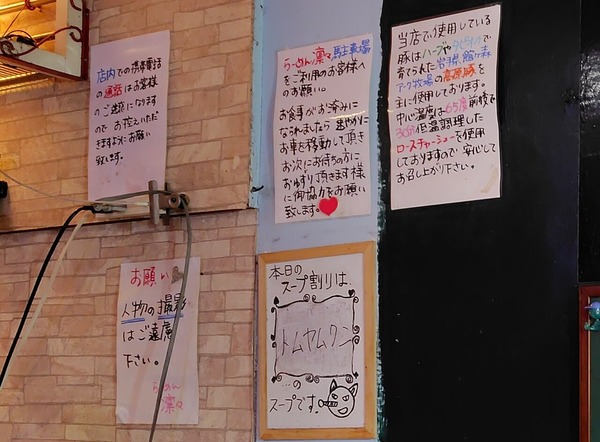 店内での携帯電話
の通話はお客様
のご迷惑になります
ので お控えいただ
きますようにお願い
致します。
らーめん 凛々 駐車場
をご利用のお客様へ
のお願い。
お食事がお済みに
なられましたら 速やかに
お車を移動して頂き
お次にお待ちの方に
おゆずり頂きます様
に御協力をお願い
致します。
当店で使用している
豚はハーブや
育てられた 岩手県 館ヶ森
アーク牧場の高原豚を
主に使用しております。
中心温度は65度前後で
30分低温調理した
ロースチャーシューを使用
しておりますので 安心して
お召し上がり下さい。
お願い
人物の撮影
はご遠慮
下さい。
らーめん
凛々
本日の
スープ割りは、
トムヤムクン
…の
スープです。